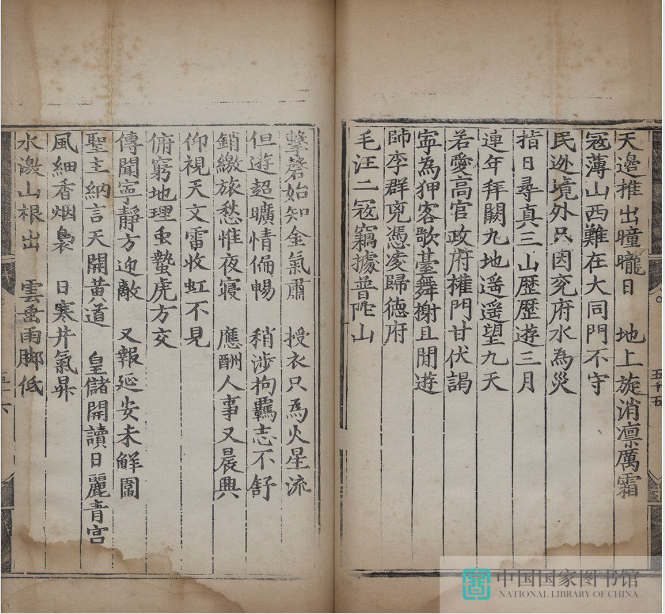 天邊推出曈曨日　地上旋消凛厲霜
冦薄山西難在大同門不守
民迯境外只因兖府水為災
指日尋真三山歷歷遊三月
連年拜闕九地遥遥望九天
若愛高官政府權門甘伏謁
寧為狎客歌臺舞榭且閒遊
師李群兇憑凌歸德府
毛汪二冦竊據普陀山
五十五
擊磬始知金氣肅　授衣只為火星流
但遊超曠情偏暢　稍涉拘羈志不舒
銷繳旅愁惟夜寢　應酬人事又晨興
仰視天文雷收虹不見
俯窮地理虫蟄虎方交
傳聞寧靜方迎敵　又報延安未解圍
聖主納言天開黄道　皇儲開讀日麗青宫
風細香烟裊　日寒井氣昇
水漲山根出　雲垂雨脚低
五十六
中国国家图书馆
NATIONAL LIBRARY OF CHINA